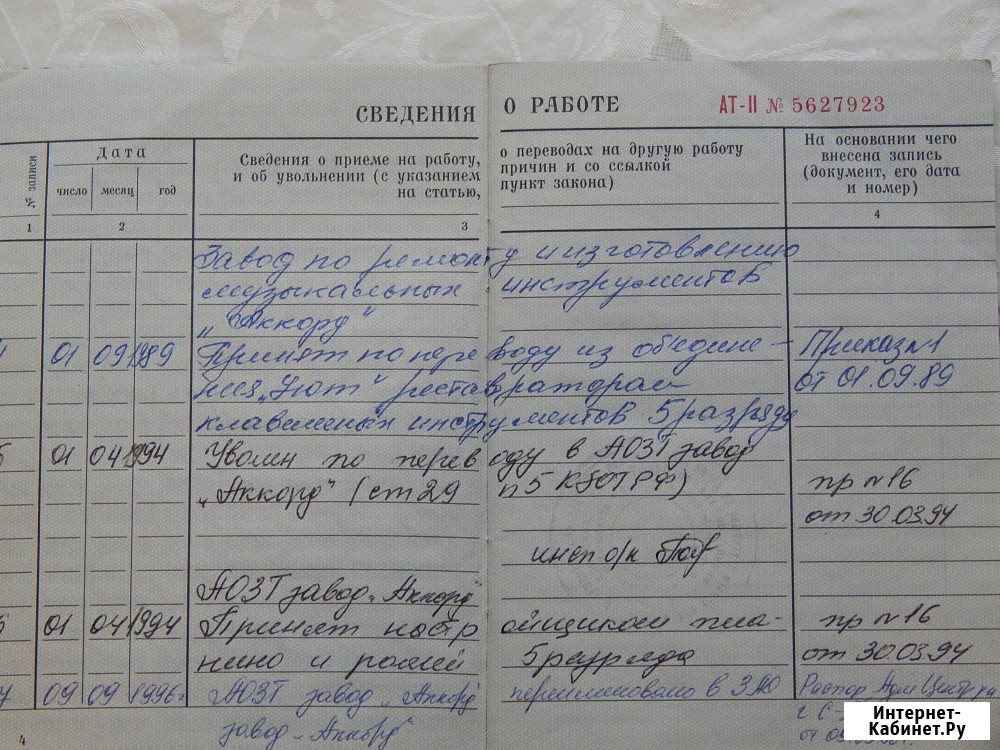 СВЕДЕНИЯ О РАБОТЕ АТ-II № 5627923
№ записи
Дата
число месяц год
Сведения о приеме на работу, о переводах на другую работу
и об увольнении (с указанием причин и со ссылкой
на статью, пункт закона)
На основании чего
внесена запись
(документ, его дата
и номер)
1 2 3 4
Завод по ремонту и изготовлению
музыкальных инструментов
„Аккорд“
01 09 1989 Принят по переводу из объедине- Приказ №1
ния „Уют“ реставратором от 01.09.89
клавишных инструментов 5 разряда
01 04 1994 Уволен по переводу в АОЗТ завод
„Аккорд“ (ст 29 п 5 КЗОТ РФ) пр №16
от 30.03.94
инсп о/к
АОЗТ завод „Аккорд“
01 04 1994 Принят настройщиком пиа- пр №16
нино и роялей 5 разряда от 30.03.94
7 09 09 1996г АОЗТ завод „Аккорд“ переименовано в ЗАО
завод „Аккорд“
4
Интернет-
Кабинет.Ру